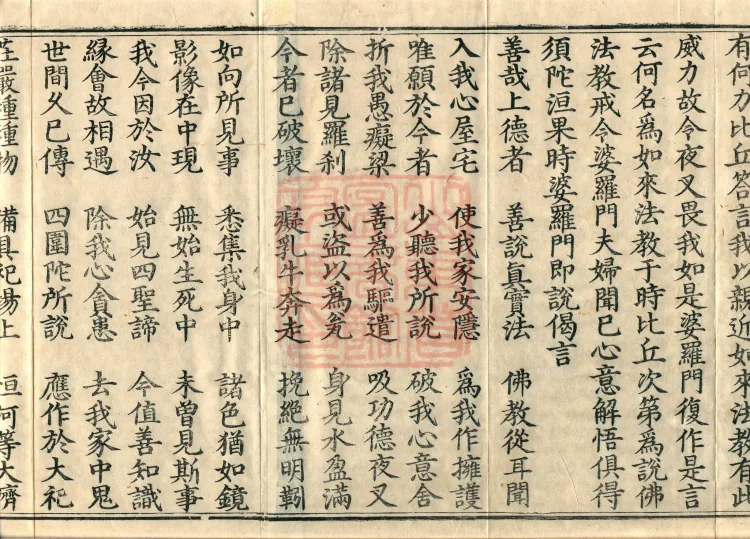 有何力比丘答言我以親近如來法教有此
威力故令夜叉畏我如是婆羅門復作是言
云何名爲如來法教于時比丘次第爲說佛
法教戒令婆羅門夫婦聞已心意解悟俱得
須陀洹果時婆羅門即說偈言
善哉上德者 善說真實法 佛教從耳聞
入我心屋宅 使我家安隱 爲我作擁護
唯願於今者 少聽我所說 破我心意舍
折我愚癡梁 善爲我驅遣 吸功德夜叉
除諸見羅刹 或盜以爲瓮 身見水盈滿
今者已破壞 癡乳牛奔走 挽絕無明靷
如向所見事 悉集我身中 諸色猶如鏡
影像在中現 無始生死中 未曾見斯事
我今因於汝 始見四聖諦 今值善知識
緣會故相遇 除我心貪恚 去我家中鬼
世間久已傳 四圍陀所說 應作於大祀
莊嚴種種物 備具祀場上 恒河等大濟